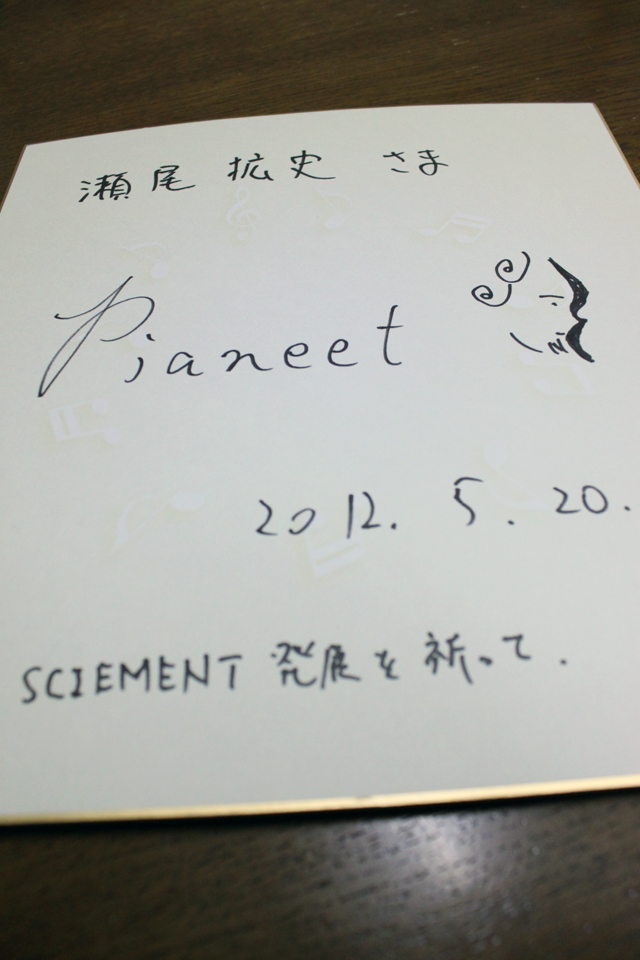 瀬尾 拡史 さま
Pianeet
2012. 5. 20.
SCIEMENT 発展を祈って.